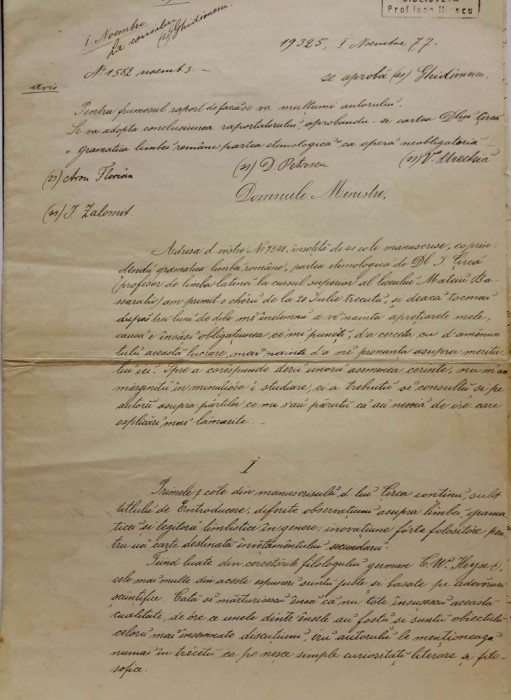 BIBLIOTECA
Prof Ioan
I Noembre
La consiliu
(ss) Ghidionescu
19325, I Noembre 77.
No 1582 noemb 3
se aprobă (ss) Ghidionescu
avis
Pentru frumosul raport de facăse va mulțumi autorului.
Se va adopta conclusiunea raportatorului, aprobandu-se cartea Dlui Circa
"gramatica limbei române partea etimologica" ca operă neobligatoriă
(ss) Aron Florian
(ss) D Petrescu
(ss) V. Urechiă
(ss) I. Zalomit
Domnule Ministre,
Adresa d vóstre No 7548, însoțită de 41 cóle manuscrise, coprin-
dendŭ gramatica limbă române, partea etimologica de Dl I Circa
(profesor de limba latină la cursul superior al liceului Mateiu Ba-
sarabŭ) am primit o chiar de la 20 Iulie trecută, și deacă tocmai
după trei luni de dile mĕ îndemnŭ a vĕ nainta aprețiările mele,
causa e însăși obligațiunea ce-mi puneți, d'a cerceta cu d'amĕnun-
tulŭ acesta lucrare, mai nainte d'a mĕ pronunța asupra meritu
lui ei. Spre a corespunde deci unorŭ asemenea cerințe, nu m'am
mărginitŭ în minuțiósa ei studiare, ci a trebuitŭ să consultŭ și pe
autorŭ asupra părților ce mi s'aŭ părutŭ că aŭ nevoiă de óre care
esplicări mai lămurite.
I
Primele cóle din manuscrisulŭ d. lui Circa continŭ, subt
titlulŭ de Entroducere, diferite observațiuni asupra limbei, grama-
ticei și legilorŭ limbistice în genere; inovațiune fórte folositóre pen-
tru uă carte destinata învĕțămîntului secundariŭ
Fiind luate din cercetările filologului german C. W. Heyse,
cele mai multe din aceste espuneri suntŭ juste și basate pe adevĕruri
sciințifice. Cată să mărturisescŭ însă că nu tóte însușescŭ acéstă
cualitate, de óre ce unele dintr'ensele aŭ fostŭ și suntŭ obiectulŭ
celorŭ mai însemnate discuțiuni, eru autorului le menționează
numai în trécĕtŭ ca pe nesce simple curiosități literare și filo-
sofice.